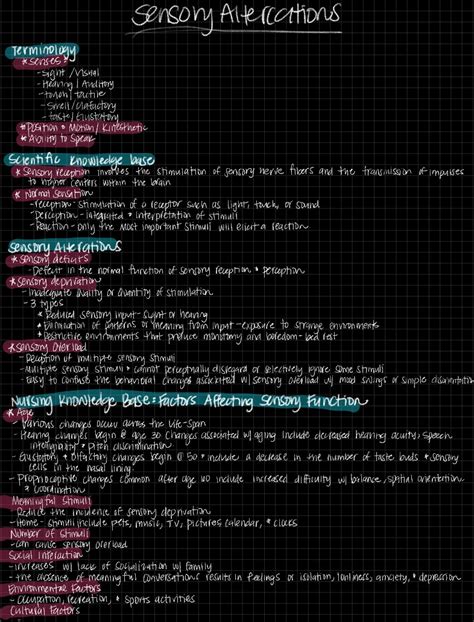 Sensory Alterations
Terminology
* Senses:
- Sight / Visual
- Hearing / Auditory
- touch / tactile
- Smell / Olafactory
- taste / Gustatory
* Position & Motion / Kinesthetic
* Ability to Speak
Scientific Knowledge base
* Sensory reception involves the stimulation of sensory nerve fibers and the transmission of impulses
to higher centers within the brain
* Normal Sensation
- Reception - stimulation of a receptor such as light, touch, or sound
- Perception - integrated & interpretation of stimuli
- Reaction - Only the most important stimuli will elicit a reaction
Sensory Alterations
* Sensory deficits
- Deficit in the normal function of sensory reception & perception
* Sensory deprivation
- Inadequate quality or quantity of stimulation
- 3 types
* Reduced sensory input - sight or hearing
* Elimination of patterns or meaning from input - exposure to strange environments
* Restrictive environments that produce monotony and boredom - bed rest
* Sensory Overload
- Reception of multiple sensory stimuli
- Multiple sensory stimuli & cannot perceptually disregard or selectively ignore some stimuli
- Easy to confuse the behavioral changes associated w/ sensory overload w/ mood swings or simple disorientation
Nursing Knowledge Base: Factors Affecting Sensory Function
* Age
- Various changes occur across the life-span
- Hearing changes begin @ age 30 Changes associated w/ aging include decreased hearing acuity, speech
intelligibility & Pitch discrimination
- Gustatory & Olfactory changes begin @ 50 & include a decrease in the number of taste buds & sensory
cells in the nasal lining
- Proprioceptive changes common after age 60 include increased difficulty w/ balance, spatial orientation
& coordination
Meaningful Stimuli
- Reduce the incidence of sensory deprivation
- Home - stimuli include pets, music, TV, pictures calendar, & clocks
Number of stimuli
- can cause sensory overload
Social interaction
- increases w/ lack of socialization w/ family
- the absence of meaningful conversations results in feelings of isolation, lonliness, anxiety, & depression
Environmental Factors
- Occupation, recreation, & sports activities
Cultural Factors